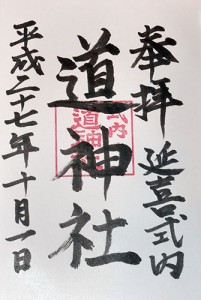 奉拝 延喜式内
道神社
式内
道神社
平成二十七年十月一日